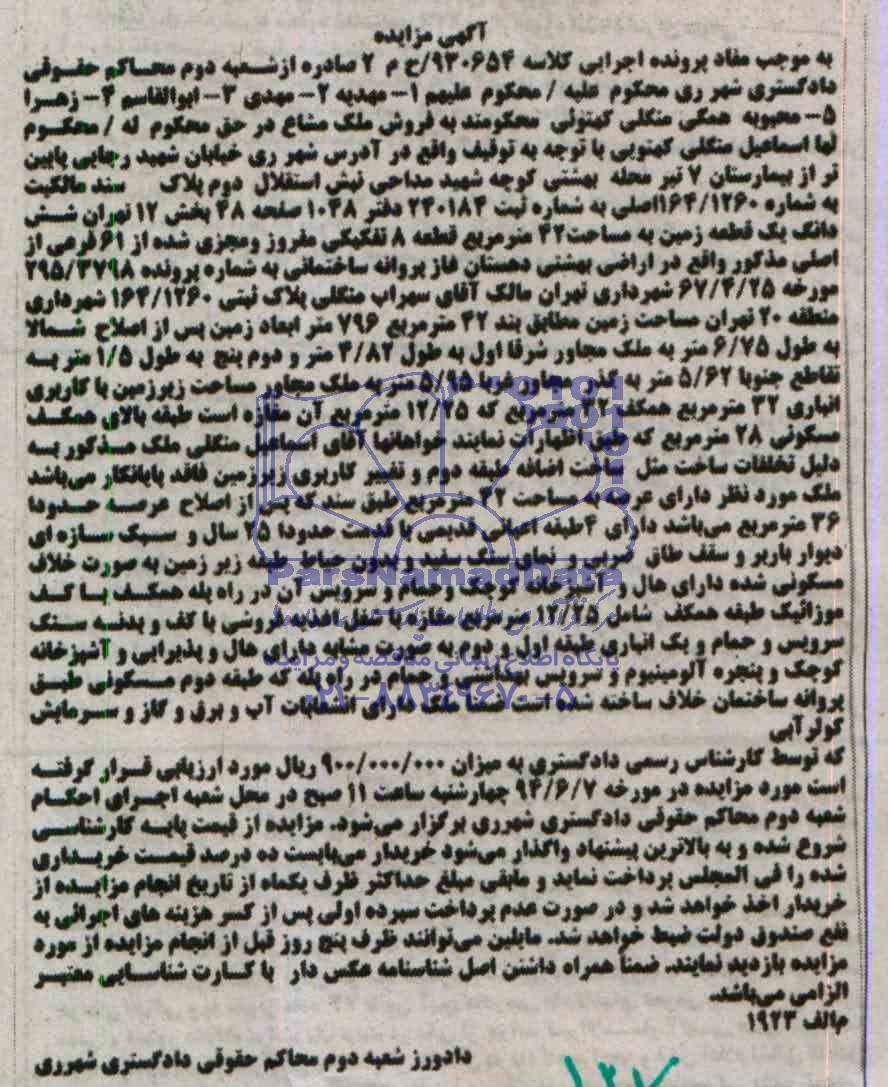 آگهی مزایده
به موجب مفاد پرونده اجرایی کلاسه ۹۳۰۶۵۴/ح م ۲ صادره از شعبه دوم محاکم حقوقی
دادگستری شهر ری محکوم علیه / محکوم علیهم ۱- مهدیه ۲- مهدی ۳- ابوالقاسم ۴- زهرا
۵- محبوبه همگی منگلی کهنوئی محکومند به فروش ملک مشاع در حق محکوم له / محکوم
لها اسماعیل منگلی کهنویی با توجه به توقیف واقع در آدرس شهر ری خیابان شهید رجایی پایین
تر از بیمارستان ۷ تیر محله بهشتی کوچه شهید مداحی نبش استقلال دوم پلاک سند مالکیت
به شماره ۱۶۴/۱۲۶۰اصلی به شماره ثبت ۲۴۰۱۸۴ دفتر ۱۰۴۸ صفحه ۴۸ بخش ۱۲ تهران شش
دانگ یک قطعه زمین به مساحت۴۲ مترمربع قطعه ۸ تفکیکی مفروز ومجزی شده از ۶۱ فرعی از
اصلی مذکور واقع در اراضی بهشتی دهستان غاز پروانه ساختمانی به شماره پرونده ۲۹۵/۳۷۹۸
مورخه ۶۷/۴/۲۵ شهرداری تهران مالک آقای سهراب منگلی پلاک ثبتی ۱۶۴/۱۲۶۰ شهرداری
منطقه ۲۰ تهران مساحت زمین مطابق بند ۴۲ مترمربع ۷۹۶ متر ابعاد زمین پس از اصلاح شمالا
به طول ۶/۷۵ متر به ملک مجاور شرقا اول به طول ۴/۸۲ متر و دوم پنج به طول ۱/۵ متر به
تقاطع جنوبا ۵/۶۲ متر به گذر مجاور غربا ۵/۹۵ متر به ملک مجاور مساحت زیرزمین با کاربری
انباری ۳۲ مترمربع همکف ۳۲ مترمربع که ۱۲/۲۵ مترمربع آن مغازه است طبقه بالای همکف
مسکونی ۲۸ مترمربع که طبق اظهارات نمایند خواهانها آقای اسماعیل منگلی ملک مذکور به
دلیل تخلفات ساخت مثل ساخت اضافه طبقه دوم و تغییر کاربری زیرزمین فاقد پایانکار می‌باشد
ملک مورد نظر دارای عرصه به مساحت ۴۲ مترمربع طبق سند که پس از اصلاح عرصه حدودا
۳۶ مترمربع می‌باشد دارای ۴طبقه اعیانی قدیمی با قدمت حدودا ۲۵ سال و سبک سازه ای
دیوار باربر و سقف طاق ضربی و نمای سنگ سفید و بدون حیاط طبقه زیر زمین به صورت خلاف
مسکونی شده دارای هال و آشپزخانه کوچک وحمام و سرویس آن در راه پله همکف با کف
موزائیک طبقه همکف شامل ۱۲/۲۵ مترمربع مغازه با شغل اغذیه فروشی با کف و بدنه سنگ
سرویس و حمام و یک انباری طبقه اول و دوم به صورت مشابه دارای هال و پذیرایی و آشپزخانه
کوچک و پنجره آلومینیوم و سرویس بهداشتی و حمام در راه پله که طبقه دوم مسکونی طبق
پروانه ساختمان خلاف ساخته شده است ضمنا ملک دارای انشعابات آب و برق و گاز و سرمایش
کولرآبی
که توسط کارشناس رسمی دادگستری به میزان ۹۰۰/۰۰۰/۰۰۰ ریال مورد ارزیابی قرار گرفته
است مورد مزایده در مورخه ۹۴/۶/۷ چهارشنبه ساعت ۱۱ صبح در محل شعبه اجرای احکام
شعبه دوم محاکم حقوقی دادگستری شهرری برگزار می‌شود. مزایده از قیمت پایه کارشناسی
شروع شده و به بالاترین پیشنهاد واگذار می‌شود خریدار می‌بایست ده درصد قیمت خریداری
شده را فی المجلس پرداخت نماید و مابقی مبلغ حداکثر ظرف یکماه از تاریخ انجام مزایده از
خریدار اخذ خواهد شد و در صورت عدم پرداخت سپرده اولی پس از کسر هزینه های اجرائی به
نفع صندوق دولت ضبط خواهد شد. مایلین می‌توانند ظرف پنج روز قبل از انجام مزایده از مورد
مزایده بازدید نمایند. ضمناً همراه داشتن اصل شناسنامه عکس دار یا کارت شناسایی معتبر
الزامی می‌باشد.
م/الف ۱۹۲۳
دادورز شعبه دوم محاکم حقوقی دادگستری شهرری
ParsNamadData
پایگاه اطلاع رسانی مناقصه و مزایده
۰۲۱-۸۸۳۴۹۶۷۰-۵